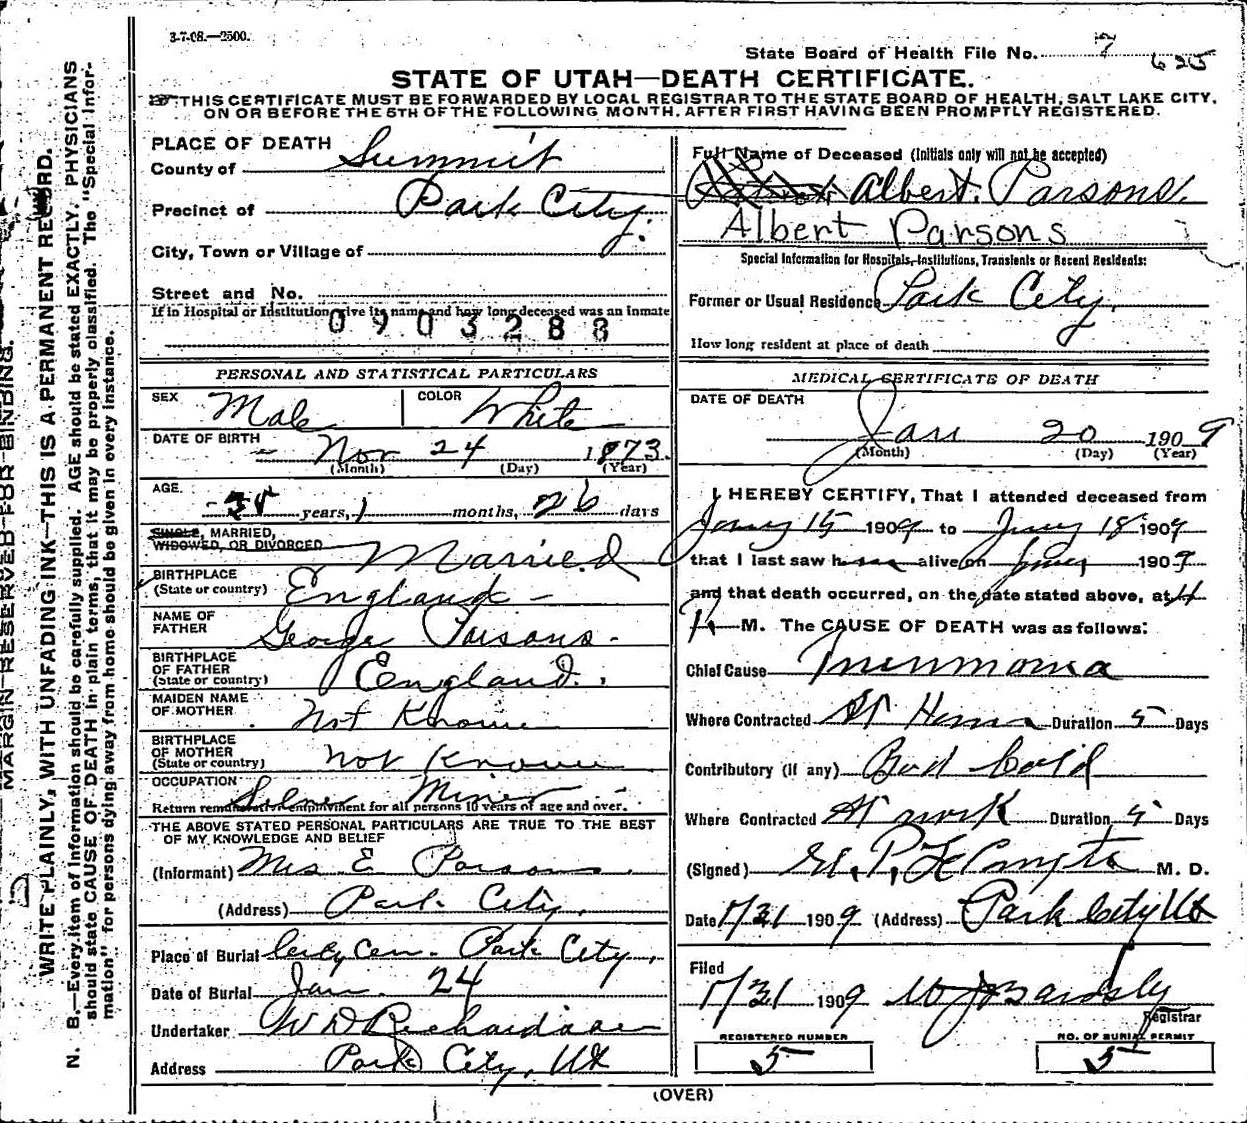 3-7-08.—2500.
State Board of Health File No. 7
625
STATE OF UTAH—DEATH CERTIFICATE.
THIS CERTIFICATE MUST BE FORWARDED BY LOCAL REGISTRAR TO THE STATE BOARD OF HEALTH, SALT LAKE CITY,
ON OR BEFORE THE 5TH OF THE FOLLOWING MONTH, AFTER FIRST HAVING BEEN PROMPTLY REGISTERED.
MARGIN RESERVED FOR BINDING.
WRITE PLAINLY, WITH UNFADING INK—THIS IS A PERMANENT RECORD.
N. B.—Every item of information should be carefully supplied. AGE should be stated EXACTLY. PHYSICIANS
should state CAUSE OF DEATH in plain terms, that it may be properly classified. The "Special Infor-
mation" for persons dying away from home should be given in every instance.
PLACE OF DEATH
County of Summit
Precinct of Park City.
City, Town or Village of
Street and No.
If in Hospital or Institution give its name and how long deceased was an inmate
0903288
PERSONAL AND STATISTICAL PARTICULARS
SEX Male COLOR White
DATE OF BIRTH Nov 24 1873.
(Month) (Day) (Year)
AGE
years, 1 months, 26 days
SINGLE, MARRIED,
WIDOWED, OR DIVORCED Married
BIRTHPLACE
(State or country) England
NAME OF
FATHER George Parsons.
BIRTHPLACE
OF FATHER
(State or country) England.
MAIDEN NAME
OF MOTHER Not Known
BIRTHPLACE
OF MOTHER
(State or country) Not Known
OCCUPATION Silver Miner
Return remunerative employment for all persons 10 years of age and over.
THE ABOVE STATED PERSONAL PARTICULARS ARE TRUE TO THE BEST
OF MY KNOWLEDGE AND BELIEF
(Informant) Mrs E Parsons.
(Address) Park City.
Place of Burial City Cem. Park City.
Date of Burial Jan. 24
Undertaker W D Richardson
Address Park City, Ut
Full Name of Deceased (Initials only will not be accepted)
Albert. Parsons.
Albert Parsons
Special Information for Hospitals, Institutions, Transients or Recent Residents:
Former or Usual Residence Park City.
How long resident at place of death
MEDICAL CERTIFICATE OF DEATH
DATE OF DEATH
Jan 20 1909
(Month) (Day) (Year)
I HEREBY CERTIFY, That I attended deceased from
Jany 15 1909 to Jany 18 1909
that I last saw him alive on Jany 1909
and that death occurred, on the date stated above, at 4
P. M. The CAUSE OF DEATH was as follows:
Chief Cause Pneumonia
Where Contracted At Home Duration 5 Days
Contributory (if any) Bad Cold
Where Contracted At work Duration 5 Days
(Signed) M. D.
Date 1/31 1909 (Address) Park City Ut
Filed
1/31 1909
Registrar
REGISTERED NUMBER
5
NO. OF BURIAL PERMIT
5
(OVER)